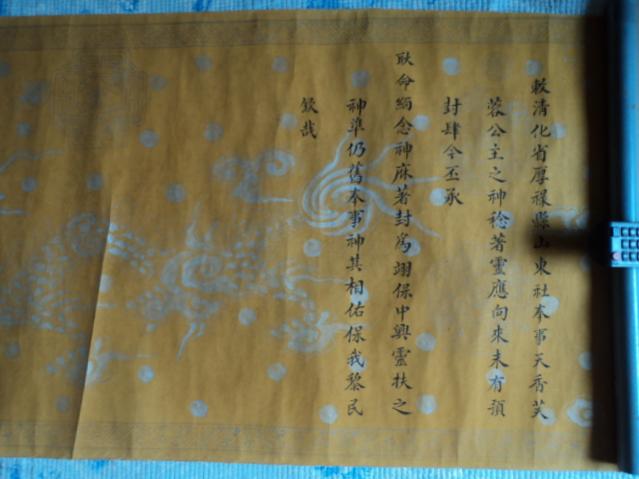 敕清化省厚祿縣山東社奉事天香芙
蓉公主之神稔著靈應向來未有預
封肆今丕承
耿命緬念神庥著封爲翊保中興靈扶之
神準仍舊奉事神其相佑保我黎民
欽哉